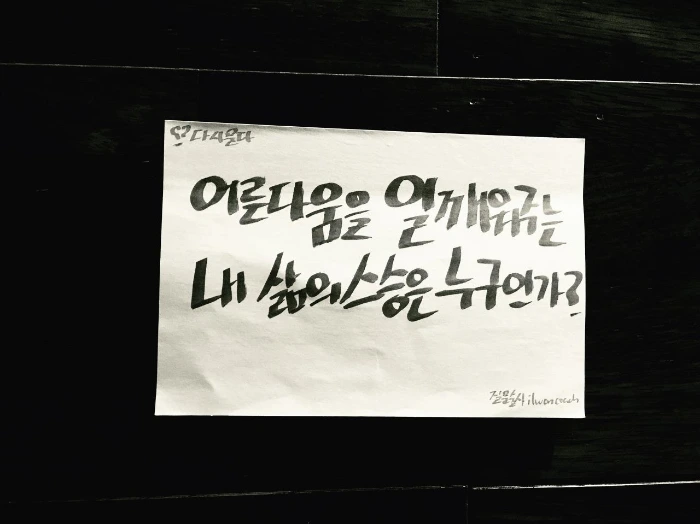 다시은다
어른다움을 일깨워주는
내 삶의 스승은 누구인가?
질문술사 ilwoncoach